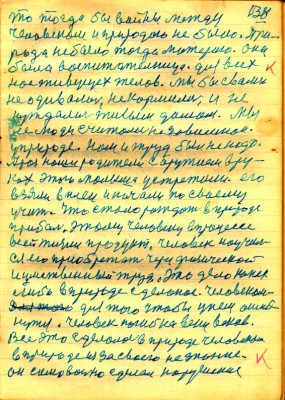 138
то тогда бы войны между
человеком и природою не было. При-
рода небыло тогда мутерию. она
была воспитательницо. для всех
на живущех телов. мы бы с вами
не одивались, не кормились, и не
нуждались жилым домом. Мы
же люди считаем не довыльной
у природе. Нам и труд был ненадо.
Про наши родители с оружием в ру-
ках этого малыша устретили. его
взяли в плен и начали по своему
учить. что стало рождать в природе
прибал. Этому человеку в процессе
всей жизни продукт. Человек научил-
ся его приобретать чрез физической
и умственный труд. Это дело
либо в природе сделоное. Человеком
для того чтобы у нем
нути. Человек погибал веки веков.
Все это сделалося в природе человеком
в природе из за своего незнание.
он самовольно сделал нарушение